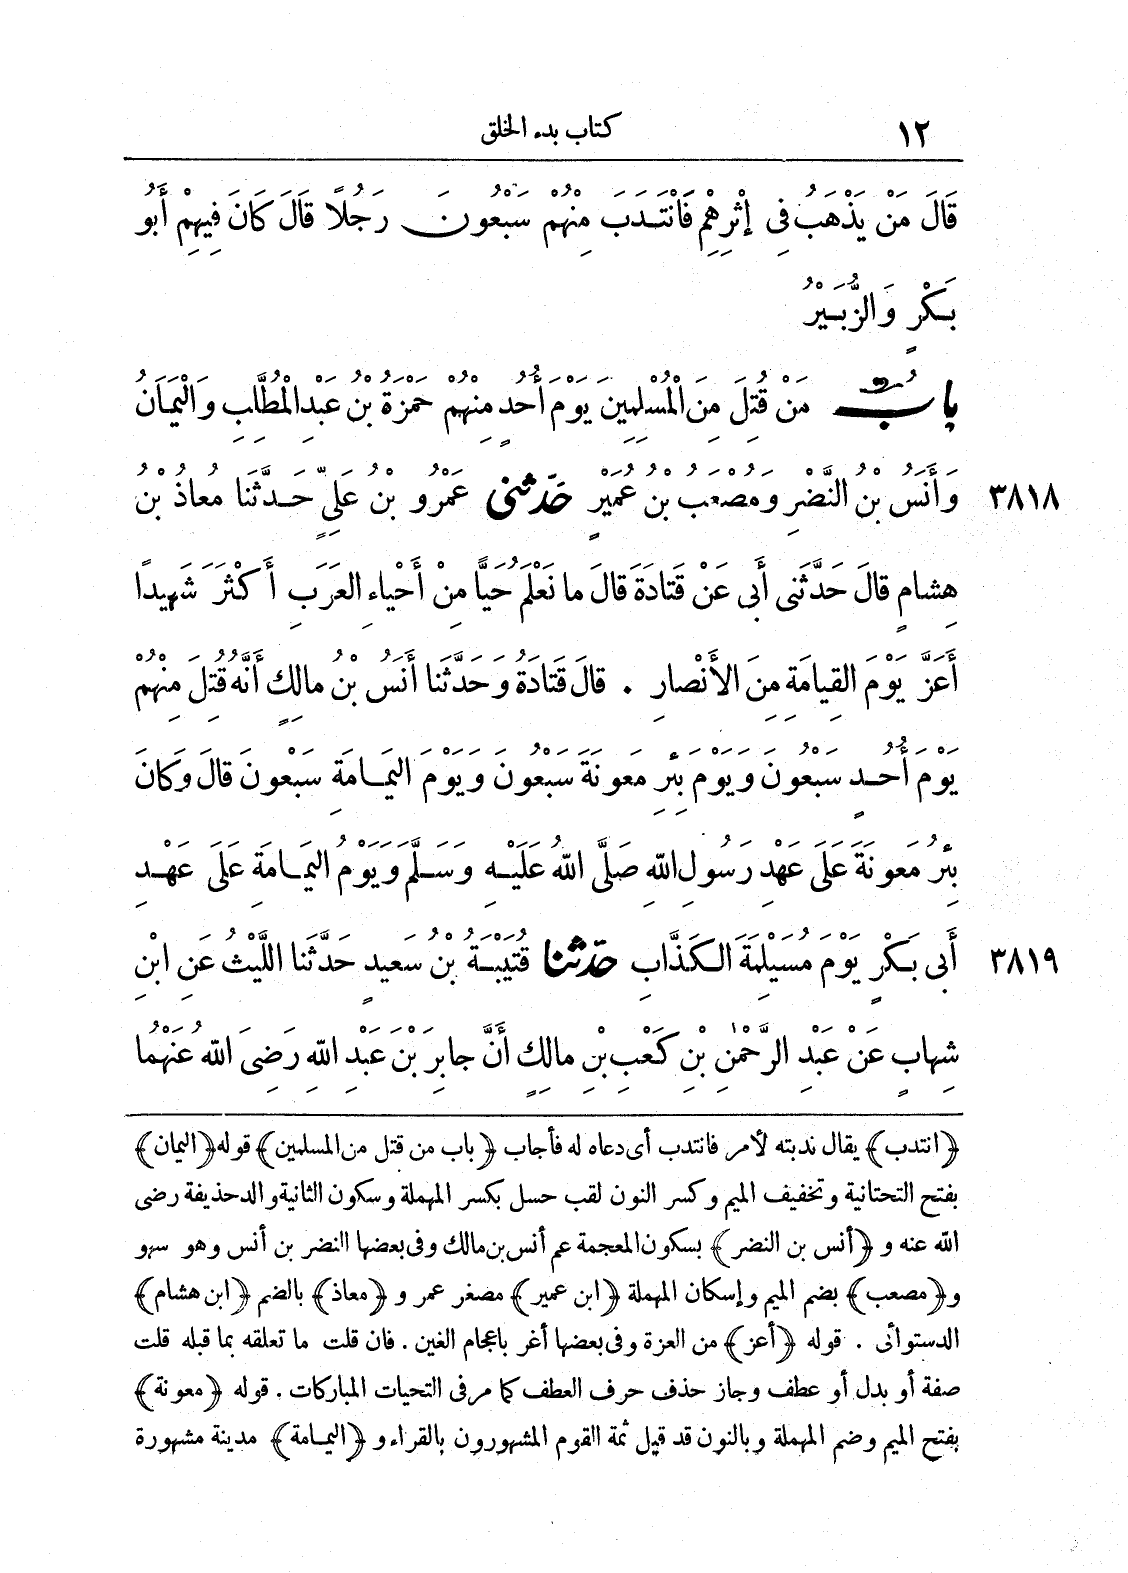 ١٢ كتاب بدء الخلق
قَالَ مَنْ يَذْهَبُ فِى إِثْرِهِمْ فَانْتَدَبَ مِنْهُمْ سَبْعُونَ رَجُلًا قَالَ كَانَ فِيهِمْ أَبُو
بَكْرٍ وَالزُّبَيْرُ
بابُ مَنْ قُتِلَ مِنَ الْمُسْلِمِينَ يَوْمَ أُحُدٍ مِنْهُمْ حَمْزَةُ بْنُ عَبْدِ الْمُطَّلِبِ وَالْيَمَانُ
٣٨١٨ وَأَنَسُ بْنُ النَّضْرِ وَمُصْعَبُ بْنُ عُمَيْرٍ حَدَّثَنِى عَمْرُو بْنُ عَلِيٍّ حَدَّثَنَا مُعاذُ بْنُ
هِشامٍ قالَ حَدَّثَنى أَبى عَنْ قَتادَةَ قالَ ما نَعْلَمُ حَيًّا مِنْ أَحْياءِ العَرَبِ أَكْثَرَ شَهِيدًا
أَعَزَّ يَوْمَ القِيامَةِ مِنَ الأَنْصارِ . قالَ قَتادَةُ وَحَدَّثَنا أَنَسُ بْنُ مالِكٍ أَنَّهُ قُتِلَ مِنْهُمْ
يَوْمَ أُحُدٍ سَبْعُونَ وَيَوْمَ بِئْرِ مَعونَةَ سَبْعُونَ وَيَوْمَ اليَمامَةِ سَبْعُونَ قالَ وَكانَ
بِئْرُ مَعونَةَ عَلَى عَهْدِ رَسُولِ اللهِ صَلَّى اللهُ عَلَيْهِ وَسَلَّمَ وَيَوْمُ اليَمامَةِ عَلَى عَهْدِ
٣٨١٩ أَبى بَكْرٍ يَوْمَ مُسَيْلِمَةَ الكَذَّابِ حدّثنا قُتَيْبَةُ بْنُ سَعيدٍ حَدَّثَنا اللَّيْثُ عَنِ ابْنِ
شِهابٍ عَنْ عَبْدِ الرَّحْمٰنِ بْنِ كَعْبِ بْنِ مالِكٍ أَنَّ جابِرَ بْنَ عَبْدِ اللهِ رَضِىَ اللهُ عَنْهُما
﴿انتدب﴾ يقال ندبته لأمر فانتدب أى دعاه له فأجاب ﴿باب من قتل من المسلمين﴾ قوله ﴿اليمان﴾
بفتح التحتانية وتخفيف الميم وكسر النون لقب حسل بكسر المهملة وسكون الثانية والد حذيفة رضى
الله عنه و ﴿أنس بن النضر﴾ بسكون المعجمة عم أنس بن مالك وفى بعضها النضر بن أنس وهو سهو
و﴿مصعب﴾ بضم الميم وإسكان المهملة ﴿ابن عمير﴾ مصغر عمر و ﴿معاذ﴾ بالضم ﴿ابن هشام﴾
الدستوائى . قوله ﴿أعز﴾ من العزة وفى بعضها أغر باعجام الغين . فان قلت ما تعلقه بما قبله قلت
صفة أو بدل أو عطف وجاز حذف حرف العطف كما مر فى التحيات المباركات . قوله ﴿معونة﴾
بفتح الميم وضم المهملة وبالنون قد قيل ثمة القوم المشهورون بالقراء و ﴿اليمامة﴾ مدينة مشهورة